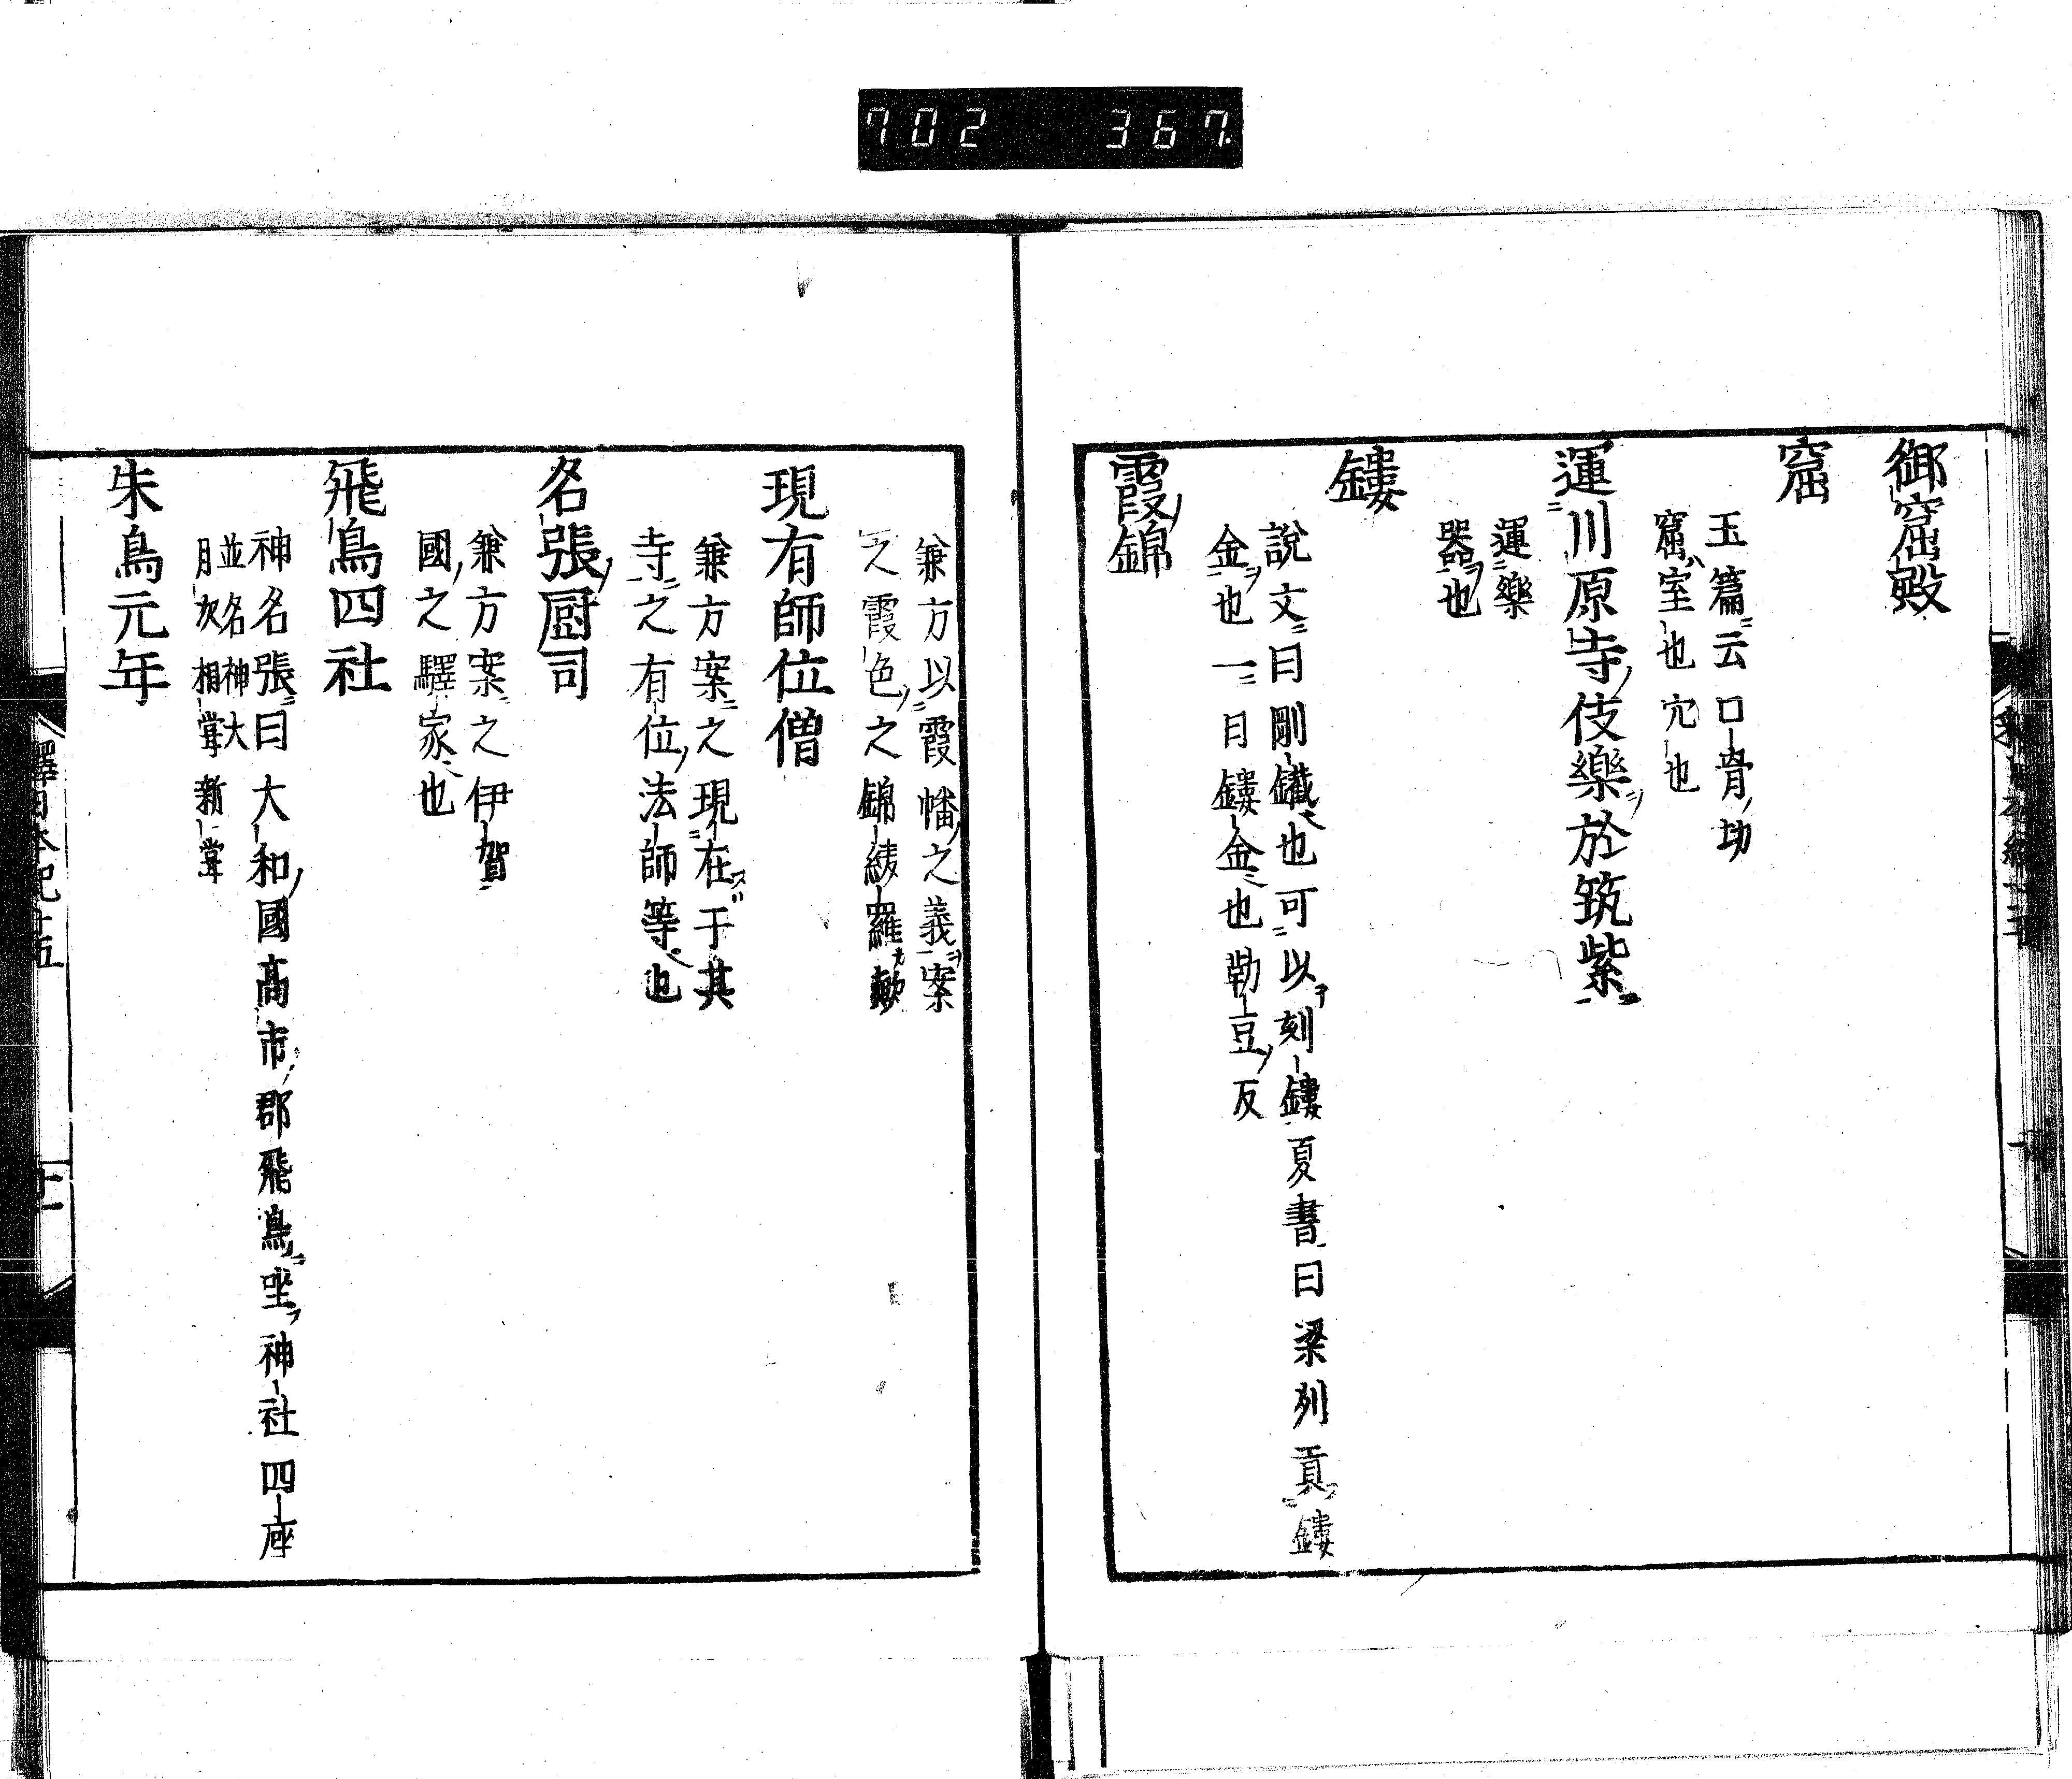 702 367
御窟殿
窟
玉篇云口骨切
窟ハ室也穴也
運川原寺伎樂於筑紫
運樂
器也
鏤
說文曰剛鐵也可以刻鏤夏書曰梁列貢鏤
金也一曰鏤金也勒豆反
霞錦
兼方以霞幡之義案
之霞色之錦綾羅歟
現有師位僧
兼方案之現在于其
寺之有位法師等也
名張厨司
兼方案之伊賀
國之驛家也
飛鳥四社
神名張曰大和國高市郡飛鳥坐神社四座
並名神大
月次相嘗新嘗
朱鳥元年
釋日本紀十五
十一